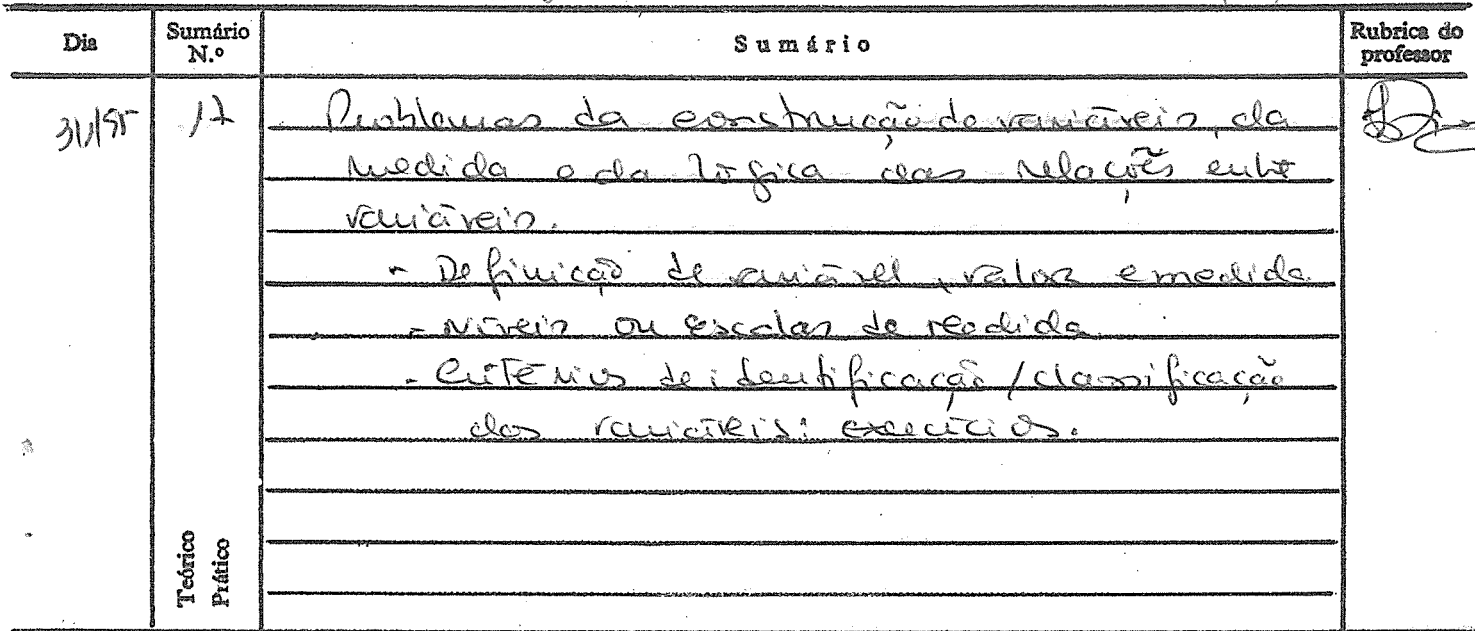 Dia Sumário N.º Sumário Rubrica do professor
17 Problemas da construção de variáveis, da
medida e da lógica das relações entre
variáveis.
- Definição de variável, valor e medida
- Níveis ou escalas de medida
- Critérios de identificação / classificação
das variáveis: exercícios.
Teórico
Prático